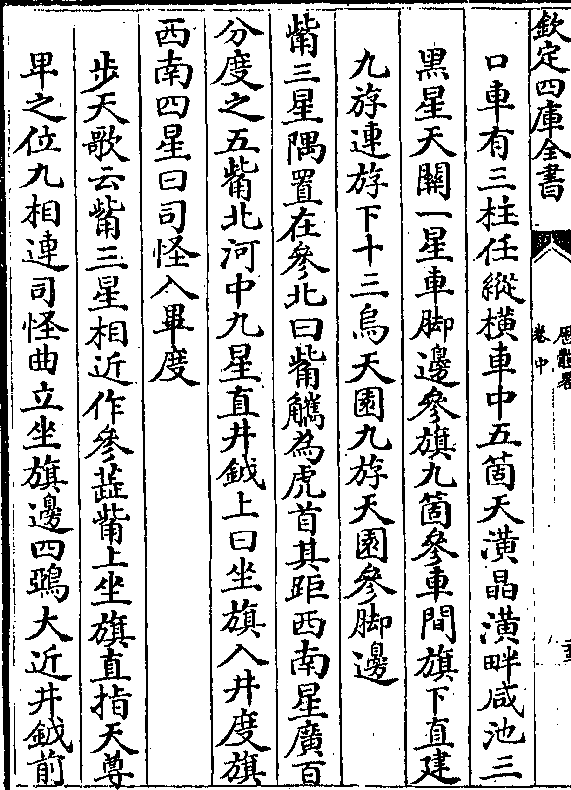 欽定四庫全書
卷中
口車有三柱任縱橫車中五箇天潢晶潢畔咸池三
黑星天關一星車脚邊參旗九箇參車間旗下直建
九斿連斿下十三烏天園九斿天園參脚邊
觜三星隅置在參北曰觜觿為虎首其距西南星廣百
分度之五觜北河中九星直井鉞上曰坐旗入井度旗
西南四星曰司怪入畢度
步天歌云觜三星相近作參蕋觜上坐旗直指天尊
卑之位九相連司怪曲立坐旗邊四鵶大近井鉞前